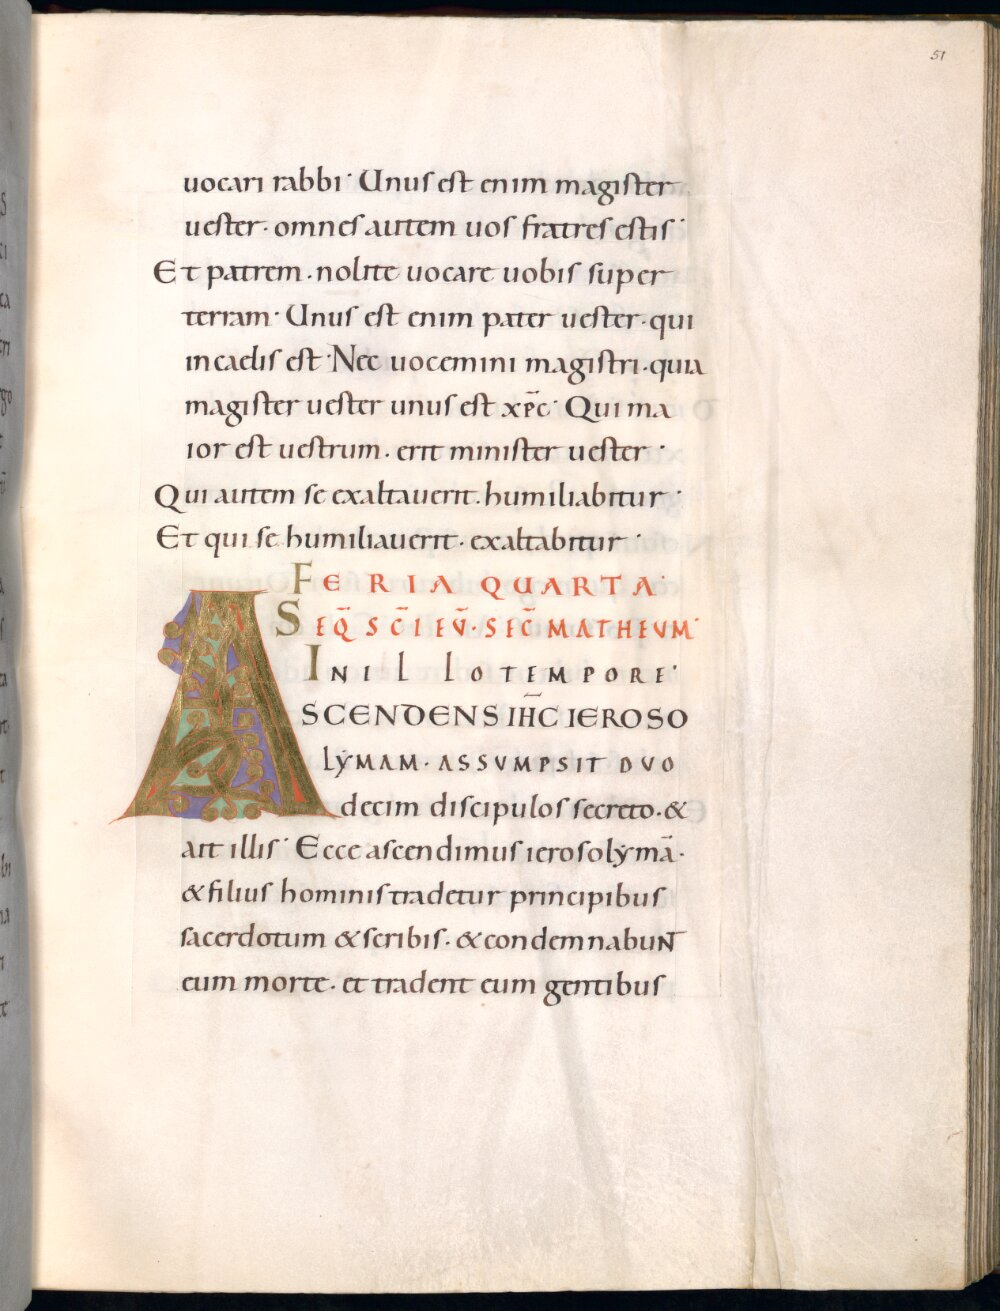 51
uocari rabbi· Unus est enim magister
uester· omnes autem uos fratres estis·
Et patrem· nolite uocare uobis super
terram· Unus est enim pater uester· qui
in caelis est· Nec uocemini magistri· quia
magister uester unus est xp̄c· Qui ma
ior est uestrum· erit minister uester·
Qui autem se exaltauerit· humiliabitur·
Et qui se humiliauerit· exaltabitur·
FERIA QUARTA·
SEQ̄ SC̄I EŪ· SEC̄ MATHEUM·
IN ILLO TEMPORE·
ASCENDENS IH̄C IEROSO
LẎMAM· ASSUMPSIT DUO
decim discipulos secreto· &
ait illis· Ecce ascendimus ierosolẏmā·
& filius hominis tradetur principibus
sacerdotum & scribis· & condemnabuNT
eum morte· et tradent eum gentibus